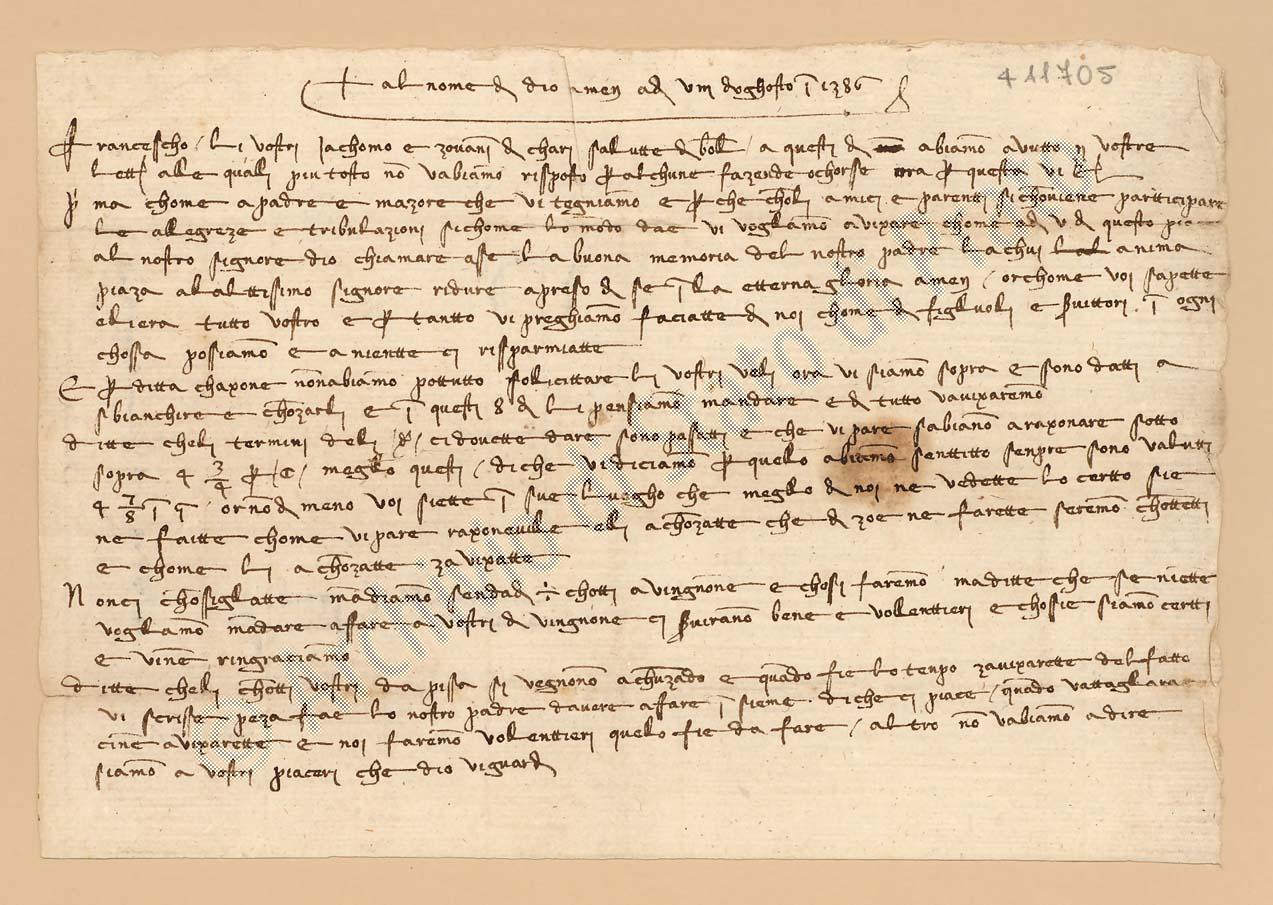 411705
+ al nome d dio amen adì viii d'oghosto 1386
Francescho li vostri Jachomo e Zovani d chari salutte d bol a questi d abiamo avutto ii vostre
lett alle qualli piu tosto no vabiamo risposto p alchune fazende ochorse ora p questa vi
p ma chome a padre e mazore che vi tegniamo e p che choli amici e parenti si choviene partticipare
le alegreze e tribulazioni sichome lo modo dae vi vogliamo avixare chome
al nostro signore dio chiamare asse la buona memoria del nostro padre la chui anima
piaza al alttissimo signore ridure apreso d se i la etterna gloria amen or chome voi sapette
eli era tutto vostro e p tantto vi preghiamo faciatte d noi chome d figluoli e svittori i ogni
chossa posiamo e a niente ci risparmiatte
E p ditta chaxone non abiamo pottutto sollicittare li vostri veli ora vi siamo sopra e sono datti a
sbianchire e chozarli e i questi 8 d li pensiamo mandare e d tutto vavixaremo
ditte che li termini deli ci dovette dare sono pasatti e che vi pare sabiano a raxonare sotto
sopra 4 3/4 p c meglio questi di che vi diciamo p quelo abiamo senttito senpre sono valutti
4 7/8 i q or nod meno voi siette i sue luogho che meglio d noi ne vedette lo certto sie
ne faitte chome vi pare raxoneville elli achozatte che d zoe ne farette seremo chottetti
e chome li achozatte zavixatte
Nonci chossigliatte madiamo sendad chotti a vingnone e chosi faremo ma ditte che se niette
vogliamo madare affare a vostri d vingnone ci sviranno bene e vollenttieri e chosie siamo certti
e vine ringraciamo
ditte che li chotti vostri da pissa si vegnono achuzado e quado fie lo tenpo zavixarette del fatto
vi scrisse peza fae lo nostro padre davere affare i sieme di che ci piace quado vattagliara
cine avixarette e noi faremo volenttieri quelo fie da fare altro no vabiamo a dire
siamo a vostri piaceri che dio vi guard